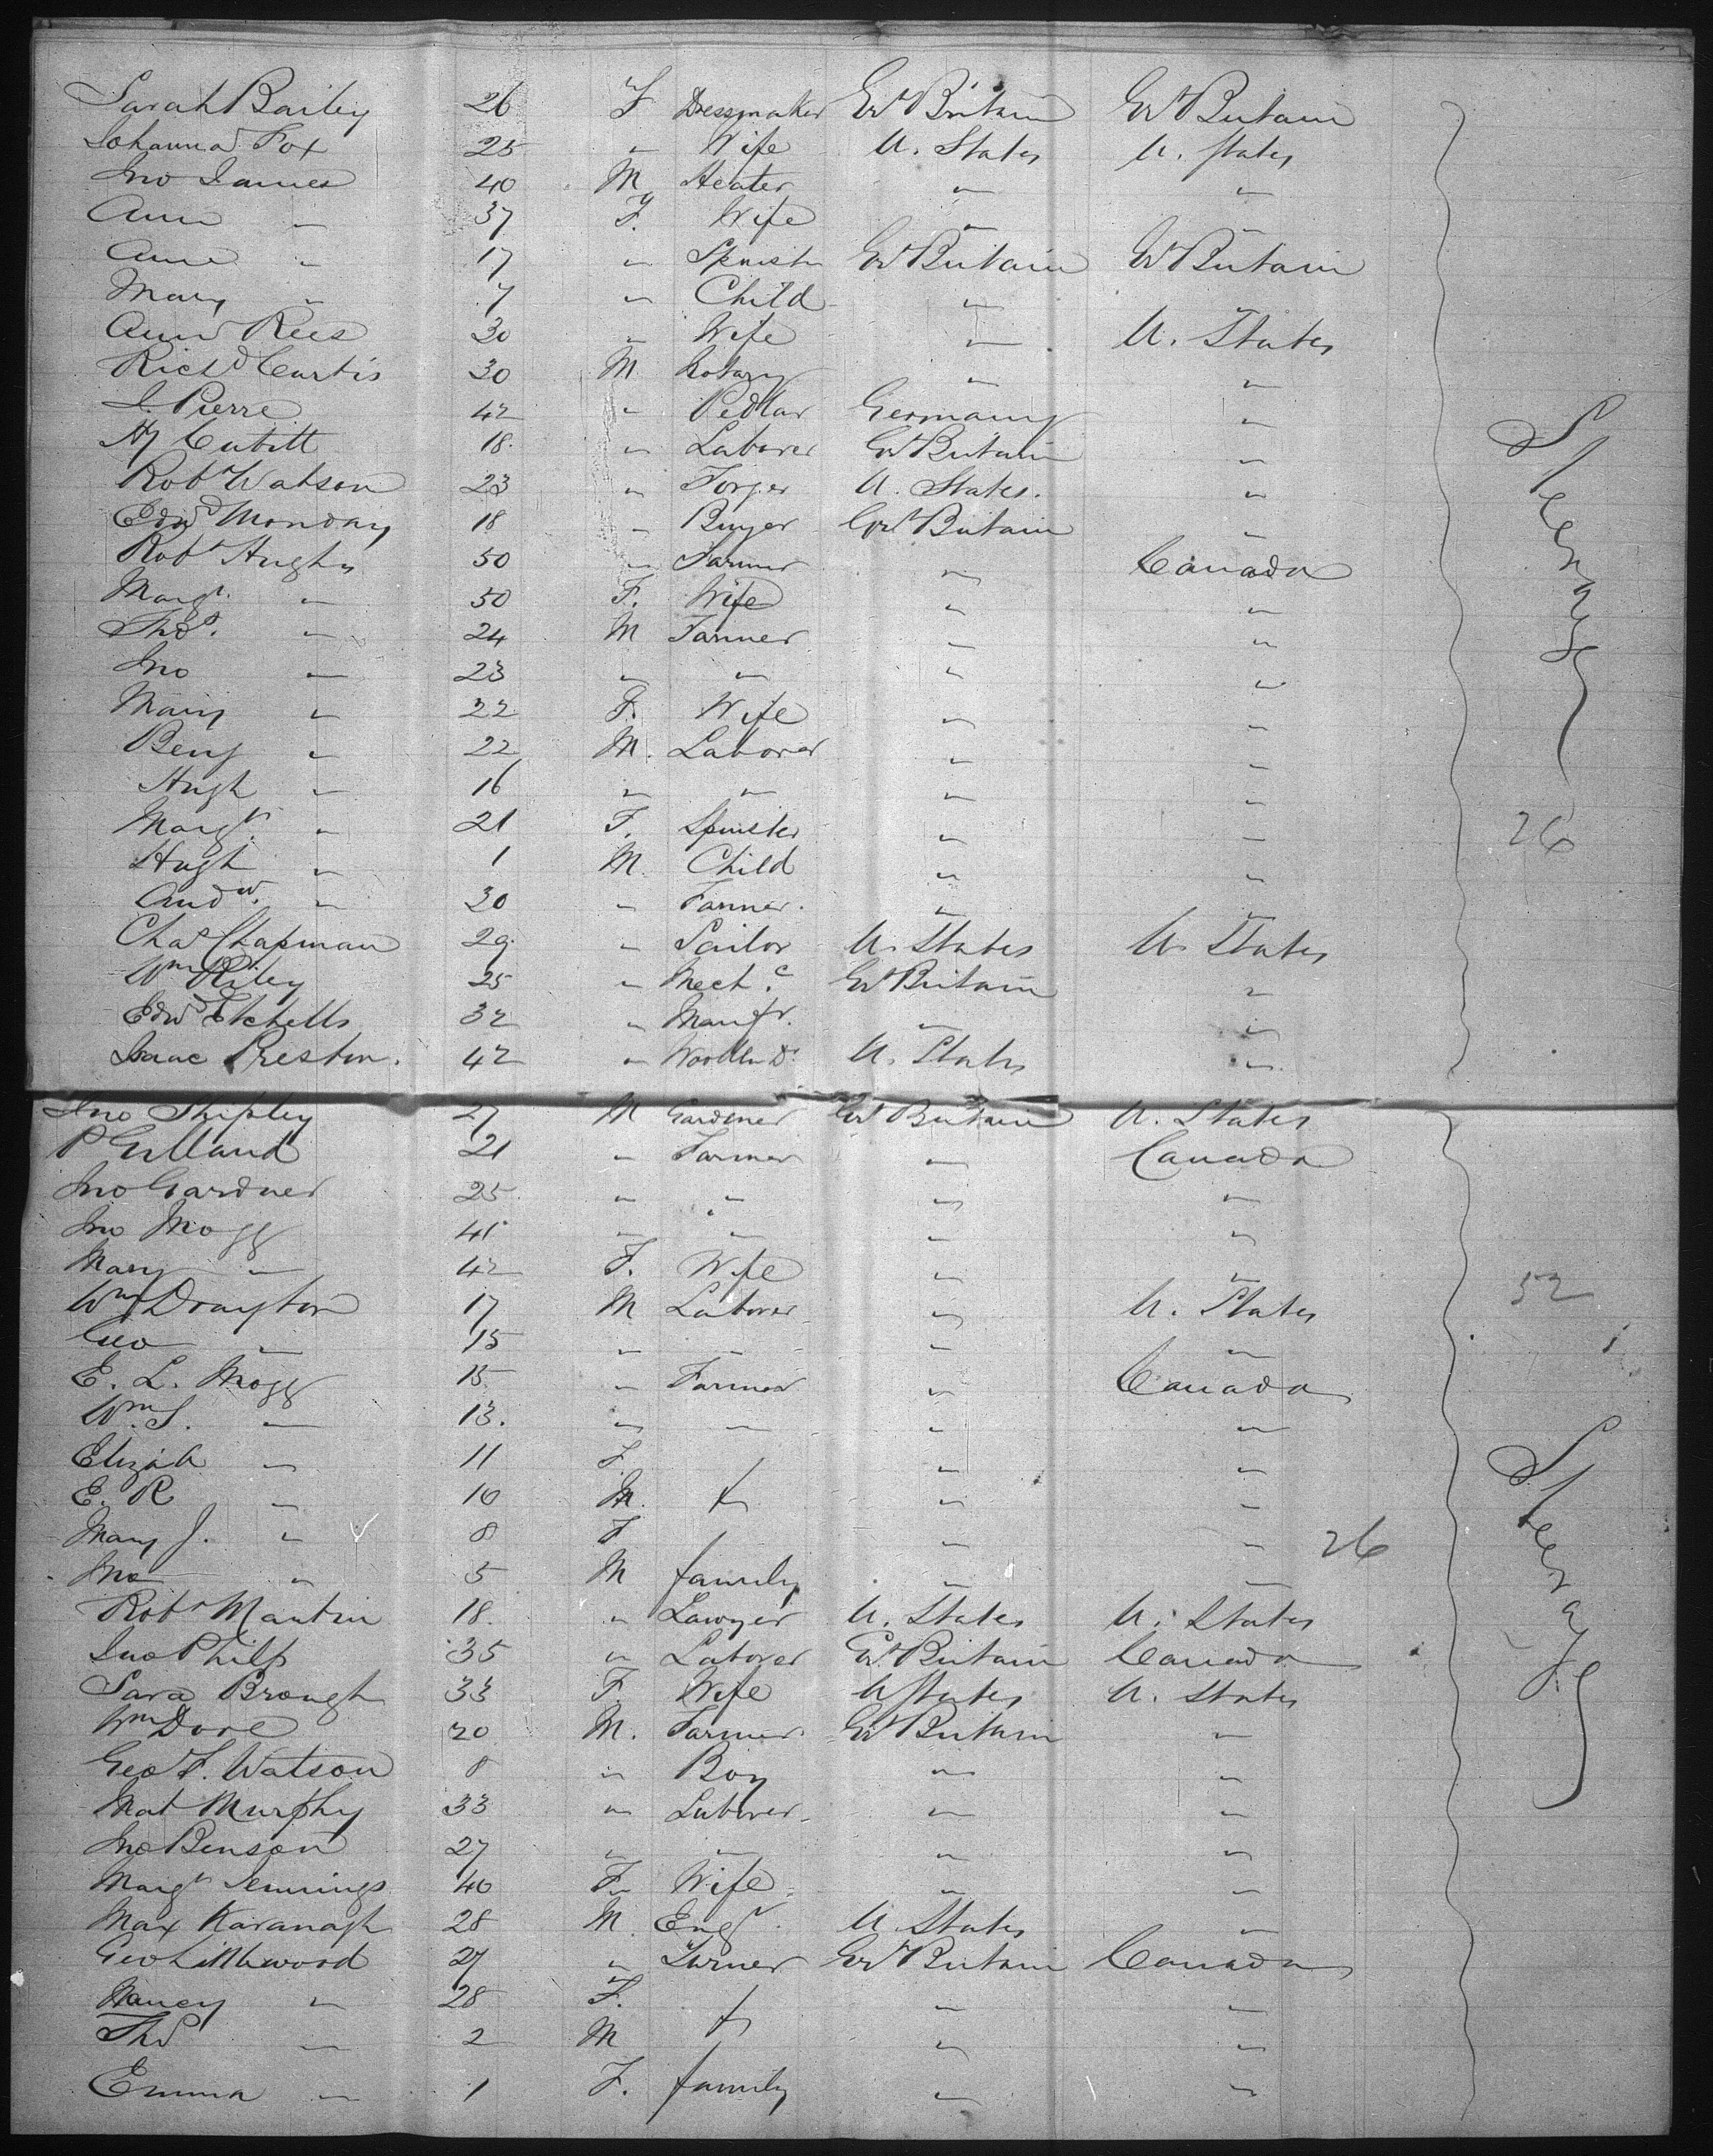 Sarah Bailey 26 F Dressmaker Grt Britain Grt Britain
Johanna Fox 25 " Wife U. States U. States
Jno James 40 M Heater " "
Ann " 37 F. Wife " "
Anne " 17 " Spinster Grt Britain Grt Britain
Mary " 7 " Child " "
Ann Rees 30 " Wife " U. States
Richd Curtis 30 M Notary " "
J. Pierre 42 " Pedlar Germany "
Hy Cubitt 18. " Laborer Grt Britain "
Robt Watson 23 " Forger U. States. "
Edwd Monday 18 " Buyer Grt Britain "
Robt Hughes 50 " Farmer " Canada
Margt. " 50 F. Wife " "
Thos. " 24 M Farmer " "
Jno " 23 " " " "
Mary " 22 F. Wife " "
Benj " 22 M. Laborer " "
Hugh " 16 " " " "
Margt. " 21 F. Spinster " "
Hugh " 1 M. Child " "
Andw. " 30 " Farmer. " "
Chas Chapman 29. " Sailor U. States U. States
Wm Riley 25 " Mech.c Grt Britain "
Edwd Etchells 32 " Manfr. " "
Isaac Preston. 42 " Woollen Dr U. States "
Steerage
26
Jno Shipley 27 M Gardner Grt Britain U. States
P Gilland 21 " Farmer " Canada
Jno Gardner 25 " " " "
Jno Mogg 41 " " " "
Mary " 42 F. Wife " "
Wm Drayton 17 M Laborer " U. States
Geo " 15 " " " "
E. L. Mogg 15 " Farmer " Canada
Wm. S. " 13. " " " "
Elizth " 11 F. " "
E. R " 10 M. " "
Mary J. " 8 F " " 26
Jno " 5 M family " "
Robt Martin 18. " Lawyer U. States U. States
Jno Philp 35 " Laborer Grt Britain Canada
Sara Brough 33 F. Wife U States U. States
Wm Dove 20 M. Farmer. Grt Britain "
Geo F. Watson 8 " Boy " "
Mat Murphy 33 " Laborer. " "
Jno Benson 27 " " " "
Margt Jennings 40 F. Wife " "
Max Kavanagh 28 M Engr. U. States "
Geo Littlewood 27 " Turner Grt Britain Canada
Nancy " 28 F. " "
Thos " 2 M " "
Emma " 1 F. family " "
52
Steerage